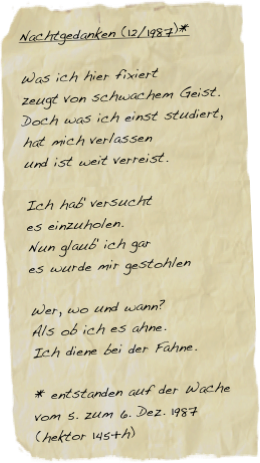 Nachtgedanken (12/1987)*
Was ich hier fixiert
zeugt von schwachem Geist.
Doch was ich einst studiert,
hat mich verlassen
und ist weit verreist.
Ich hab' versucht
es einzuholen.
Nun glaub' ich gar
es wurde mir gestohlen
Wer, wo und wann?
Als ob ich es ahne.
Ich diene bei der Fahne.
* entstanden auf der Wache
vom 5. zum 6. Dez. 1987
(hektor 145+h)